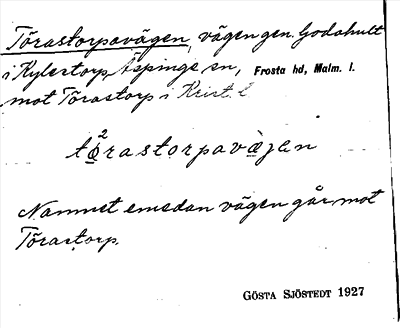 Törastorpavägen, vägen gen. Godahult
i Kylestorp, Äspinge sn, Frosta hd, Malm. l.
mot Törastorp i Krist. l
tö²rastorpavὰjen
Namnet emedan vägen går mot
Törastorp.
GÖSTA SJÖSTEDT 1927